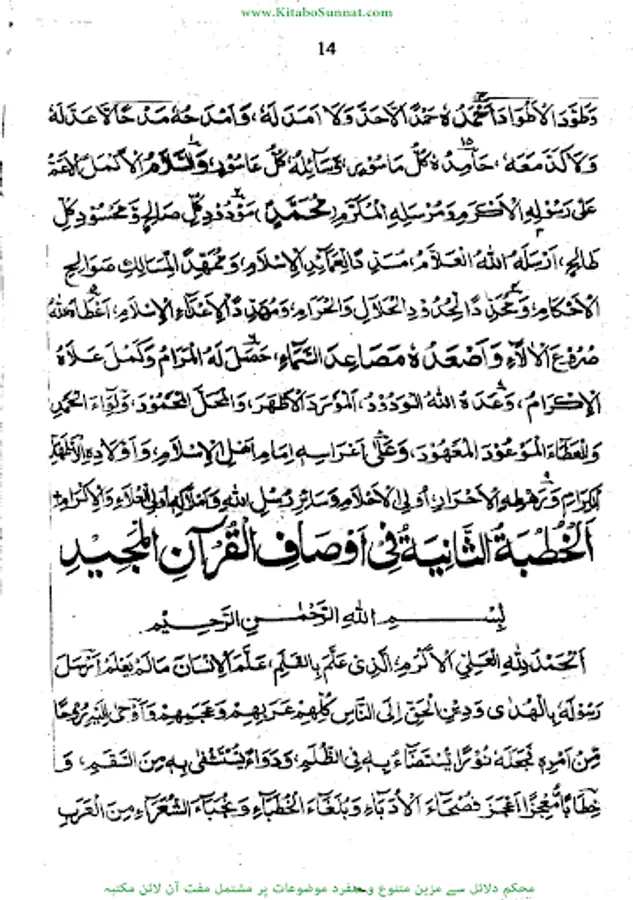 www.KitaboSunnat.com
14
وَطَوَّدَ الْاَطْوَادَ اَحْمَدُهٗ حَمْدًا لَّا حَدَّ وَلَا اَمَدَ لَهٗ، وَاَمْدَحُهٗ مَدْحًا لَّا عَدَّ لَهٗ
وَلَا كَدَّ مَعَهٗ، حَامِدُهٗ كُلُّ مَاسُوْسٍ، وَسَائِلُهٗ كُلُّ عَاسُوْسٍ وَالسَّلَامُ الْاَكْمَلُ الْاَعَمُّ
عَلٰى رَسُوْلِهِ الْاَكْرَمِ وَمُرْسَلِهِ الْمُكَرَّمِ مُحَمَّدٍ، مَوْدُوْدِ كُلِّ صَالِحٍ وَّمَحْسُوْدِ كُلِّ
طَالِحٍ، اَرْسَلَهُ اللهُ الْعَلَّامُ، الْاِسْلَامِ، وَمُمَهِّدَ الْمَسَالِكِ صَوَالِحِ
الْاَحْكَامِ، وَمُحَدِّدًا لِحُدُوْدِ الْحَلَالِ وَالْحَرَامِ، وَمُهَدِّدًا لِاَعْدَاءِ الْاِسْلَامِ، اَعْطَاهُ اللهُ
الْاٰلَاءِ وَاَصْعَدَهٗ مَصَاعِدَ السَّمَاءِ، حَصَلَ لَهُ الْمَرَامُ وَكَمُلَ عَلَاهُ
الْاِكْرَامُ، وَعَدَهُ اللهُ الْوَدُوْدُ، الْمَوْرِدَ الْاَطْهَرَ، وَالْمَحَلَّ الْمَحْمُوْدَ، وَلِوَاءَ الْحَمْدِ
الْمَوْعُوْدَ الْمَعْهُوْدَ، وَعَلٰى اِمَامِ اَهْلِ الْاِسْلَامِ، وَاَوْلَادِهِ الْاَطْهَارِ
الْكِرَامِ وَرَهْطِهِ الْاَحْرَارِ، اُولِي الْاَحْلَامِ وَسَائِرِ رُسُلِ اللهِ وَاَمْلَاكِهِ اُولِي الْعَلَاءِ وَالْاِكْرَامِ
اَلْخُطْبَةُ الثَّانِيَةُ فِيْ اَوْصَافِ الْقُرْآنِ الْمَجِيْدِ
بِسْمِ اللهِ الرَّحْمٰنِ الرَّحِيْمِ
اَلْحَمْدُ لِلّٰهِ الْعَلِيِّ الْاَكْرَمِ، الَّذِيْ عَلَّمَ بِالْقَلَمِ، عَلَّمَ الْاِنْسَانَ مَا لَمْ يَعْلَمْ، اَرْسَلَ
رَسُوْلَهٗ بِالْهُدٰى وَدِيْنِ الْحَقِّ اِلَى النَّاسِ كُلِّهِمْ عَرَبِهِمْ وَعَجَمِهِمْ وَاَوْحٰى اِلَيْهِ رُوْحًا
مِّنْ اَمْرِهٖ فَجَعَلَهٗ نُوْرًا يُّسْتَضَاءُ بِهٖ فِي الظُّلَمِ، وَدَوَاءً يُّسْتَشْفٰى بِهٖ مِنَ السَّقَمِ، وَ
خِطَابًا مُّعْجِزًا اَعْجَزَ فُصَحَاءَ الْاُدَبَاءِ وَبُلَغَاءَ الْخُطَبَاءِ وَنُجَبَاءَ الشُّعَرَاءِ مِنَ الْعَرَبِ
محکم دلائل سے مزین متنوع و منفرد موضوعات پر مشتمل مفت آن لائن مکتبہ